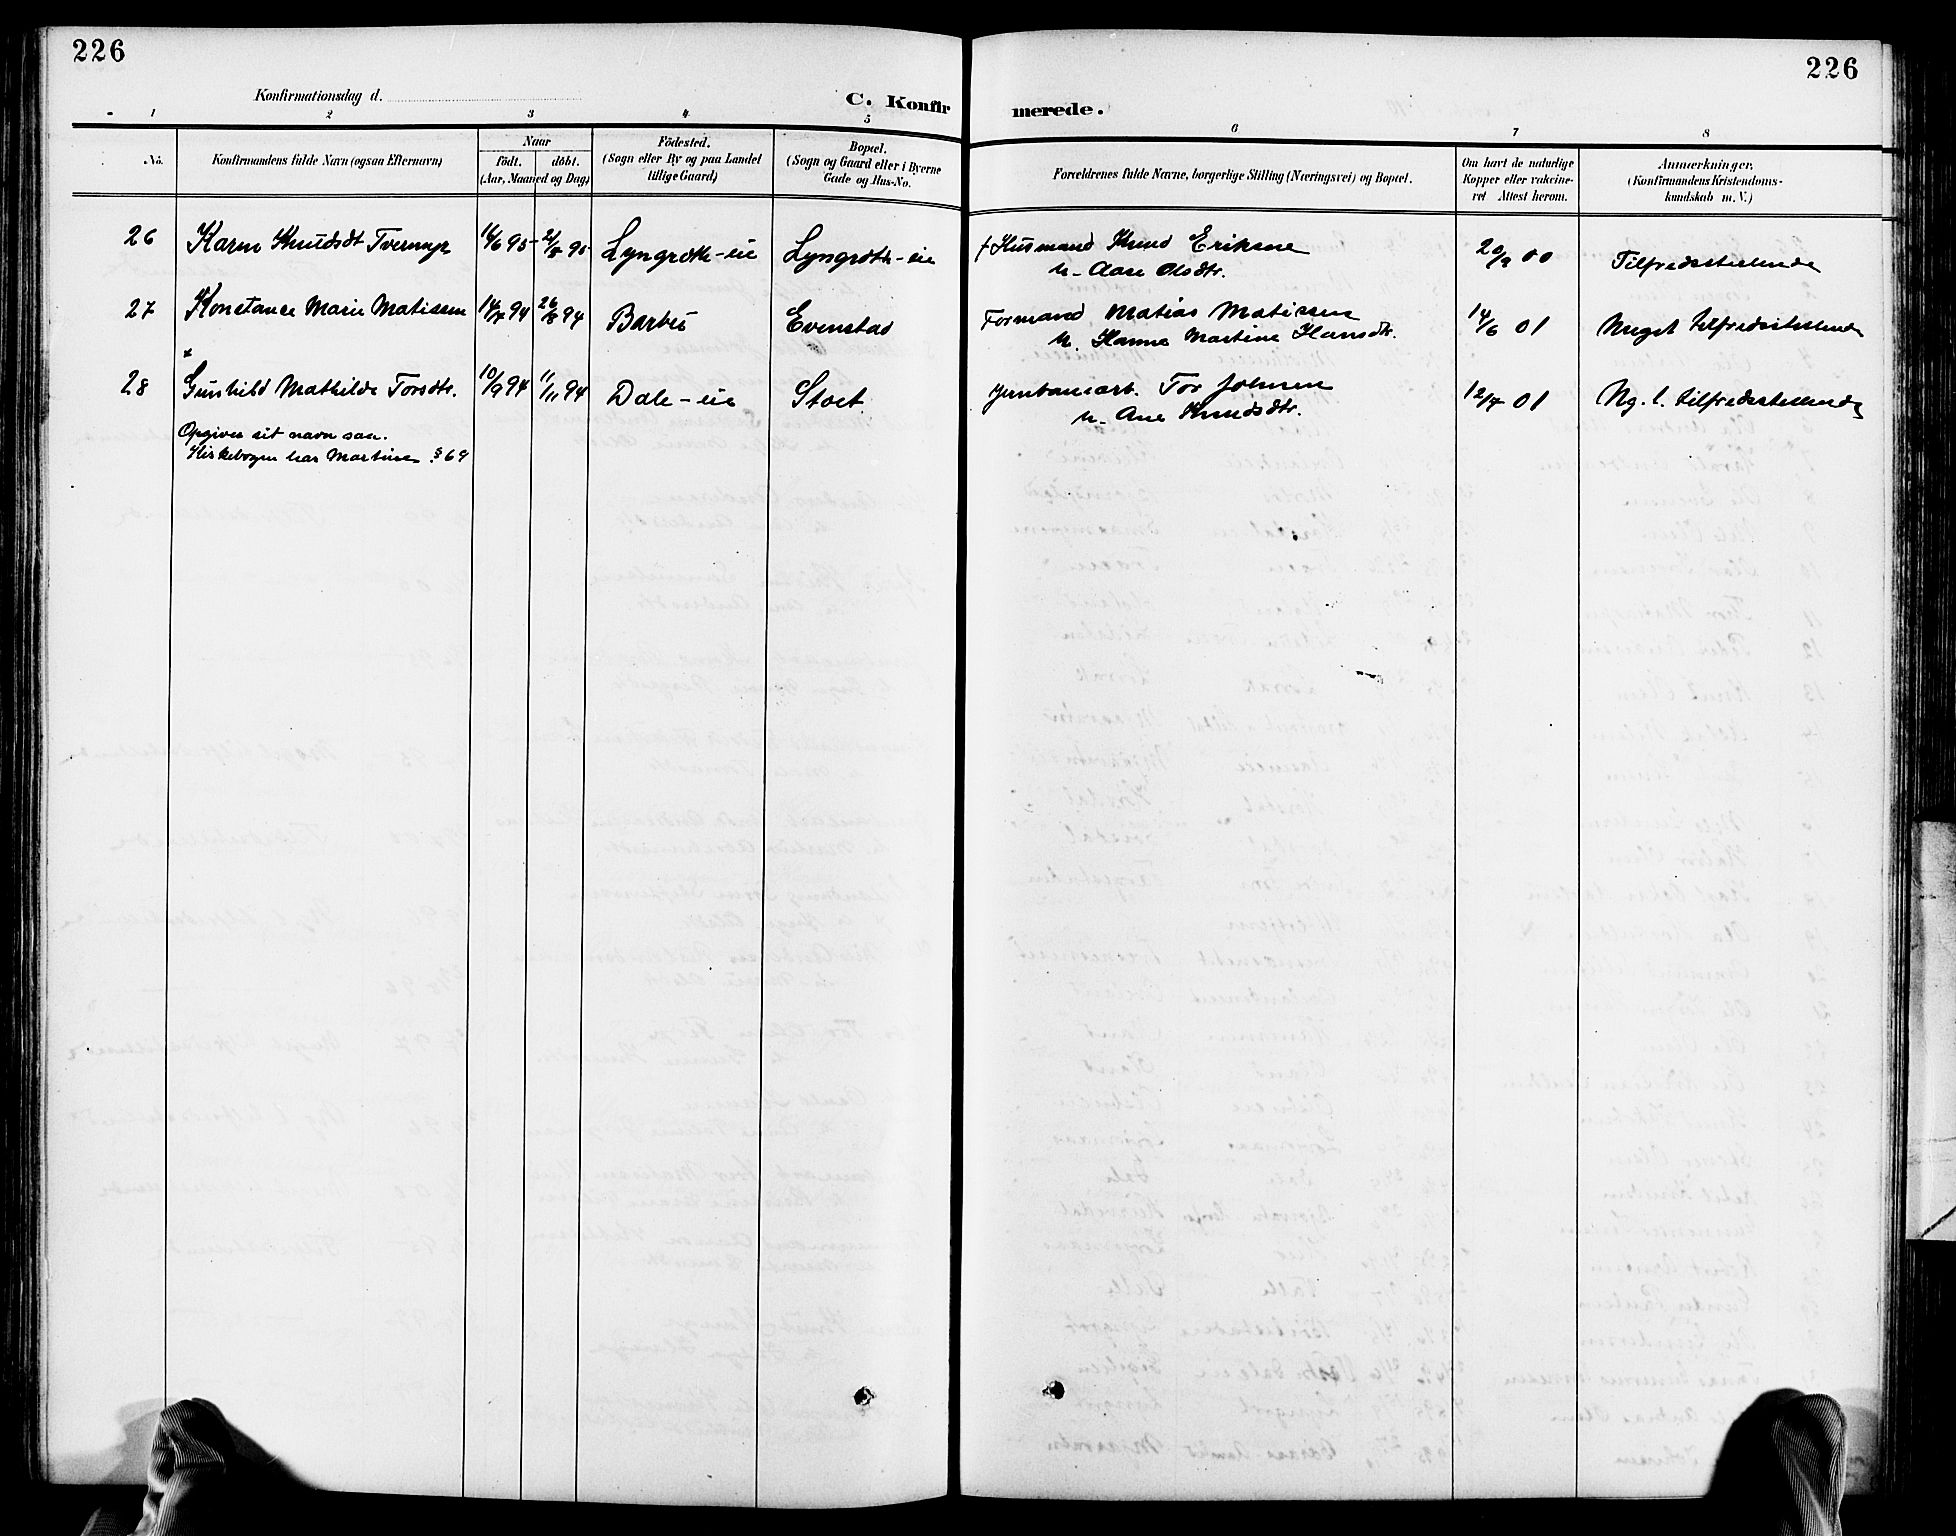 226
226
Konfirmationsdag d.
C. Konfirmerede.
1 2 3 4 5 6 7 8
No.
Konfirmandens fulde Navn (ogsaa Efternavn)
Naar
født. døbt.
(Aar, Maaned og Dag)
Fødested.
(Sogn eller By og paa Landet
tillige Gaard)
Bopæl.
(Sogn og Gaard eller i Byerne
Gade og Hus-No.
Forældrenes fulde Navne, borgerlige Stilling (Næringsvei) og Bopæl.
Om havt de naturlige
Kopper eller vakcine-
ret Attest herom.
Anmærkninger,
(Konfirmandens Kristendoms-
kundskab m. V.)
26 Karen Knudsdt Tvermyr 95 95 Lyngroth-eie Lyngroth-eie f Husmand Knud Eriksne 20/9 00 Tilfredsstillende
u. Aase Olsdtr.
27 Konstance Marie Matissen 14/7 94 26/8 94 Barbu Evenstad Formand Matias Matissen 14/6 01 Meget tilfredsstillende
u. Hanne Martine Hansdtr.
28 Gunhild Mathilde Torsdtr. 10/9 94 11/11 94 Dale-eie Stoet Jernbanearb. Tor Johnsen 12/7 01 Ng. l. tilfredsstillende
u. Ane Knudsdtr.
Opgiver sit navn saa.
Kirkebogen har Martine §69